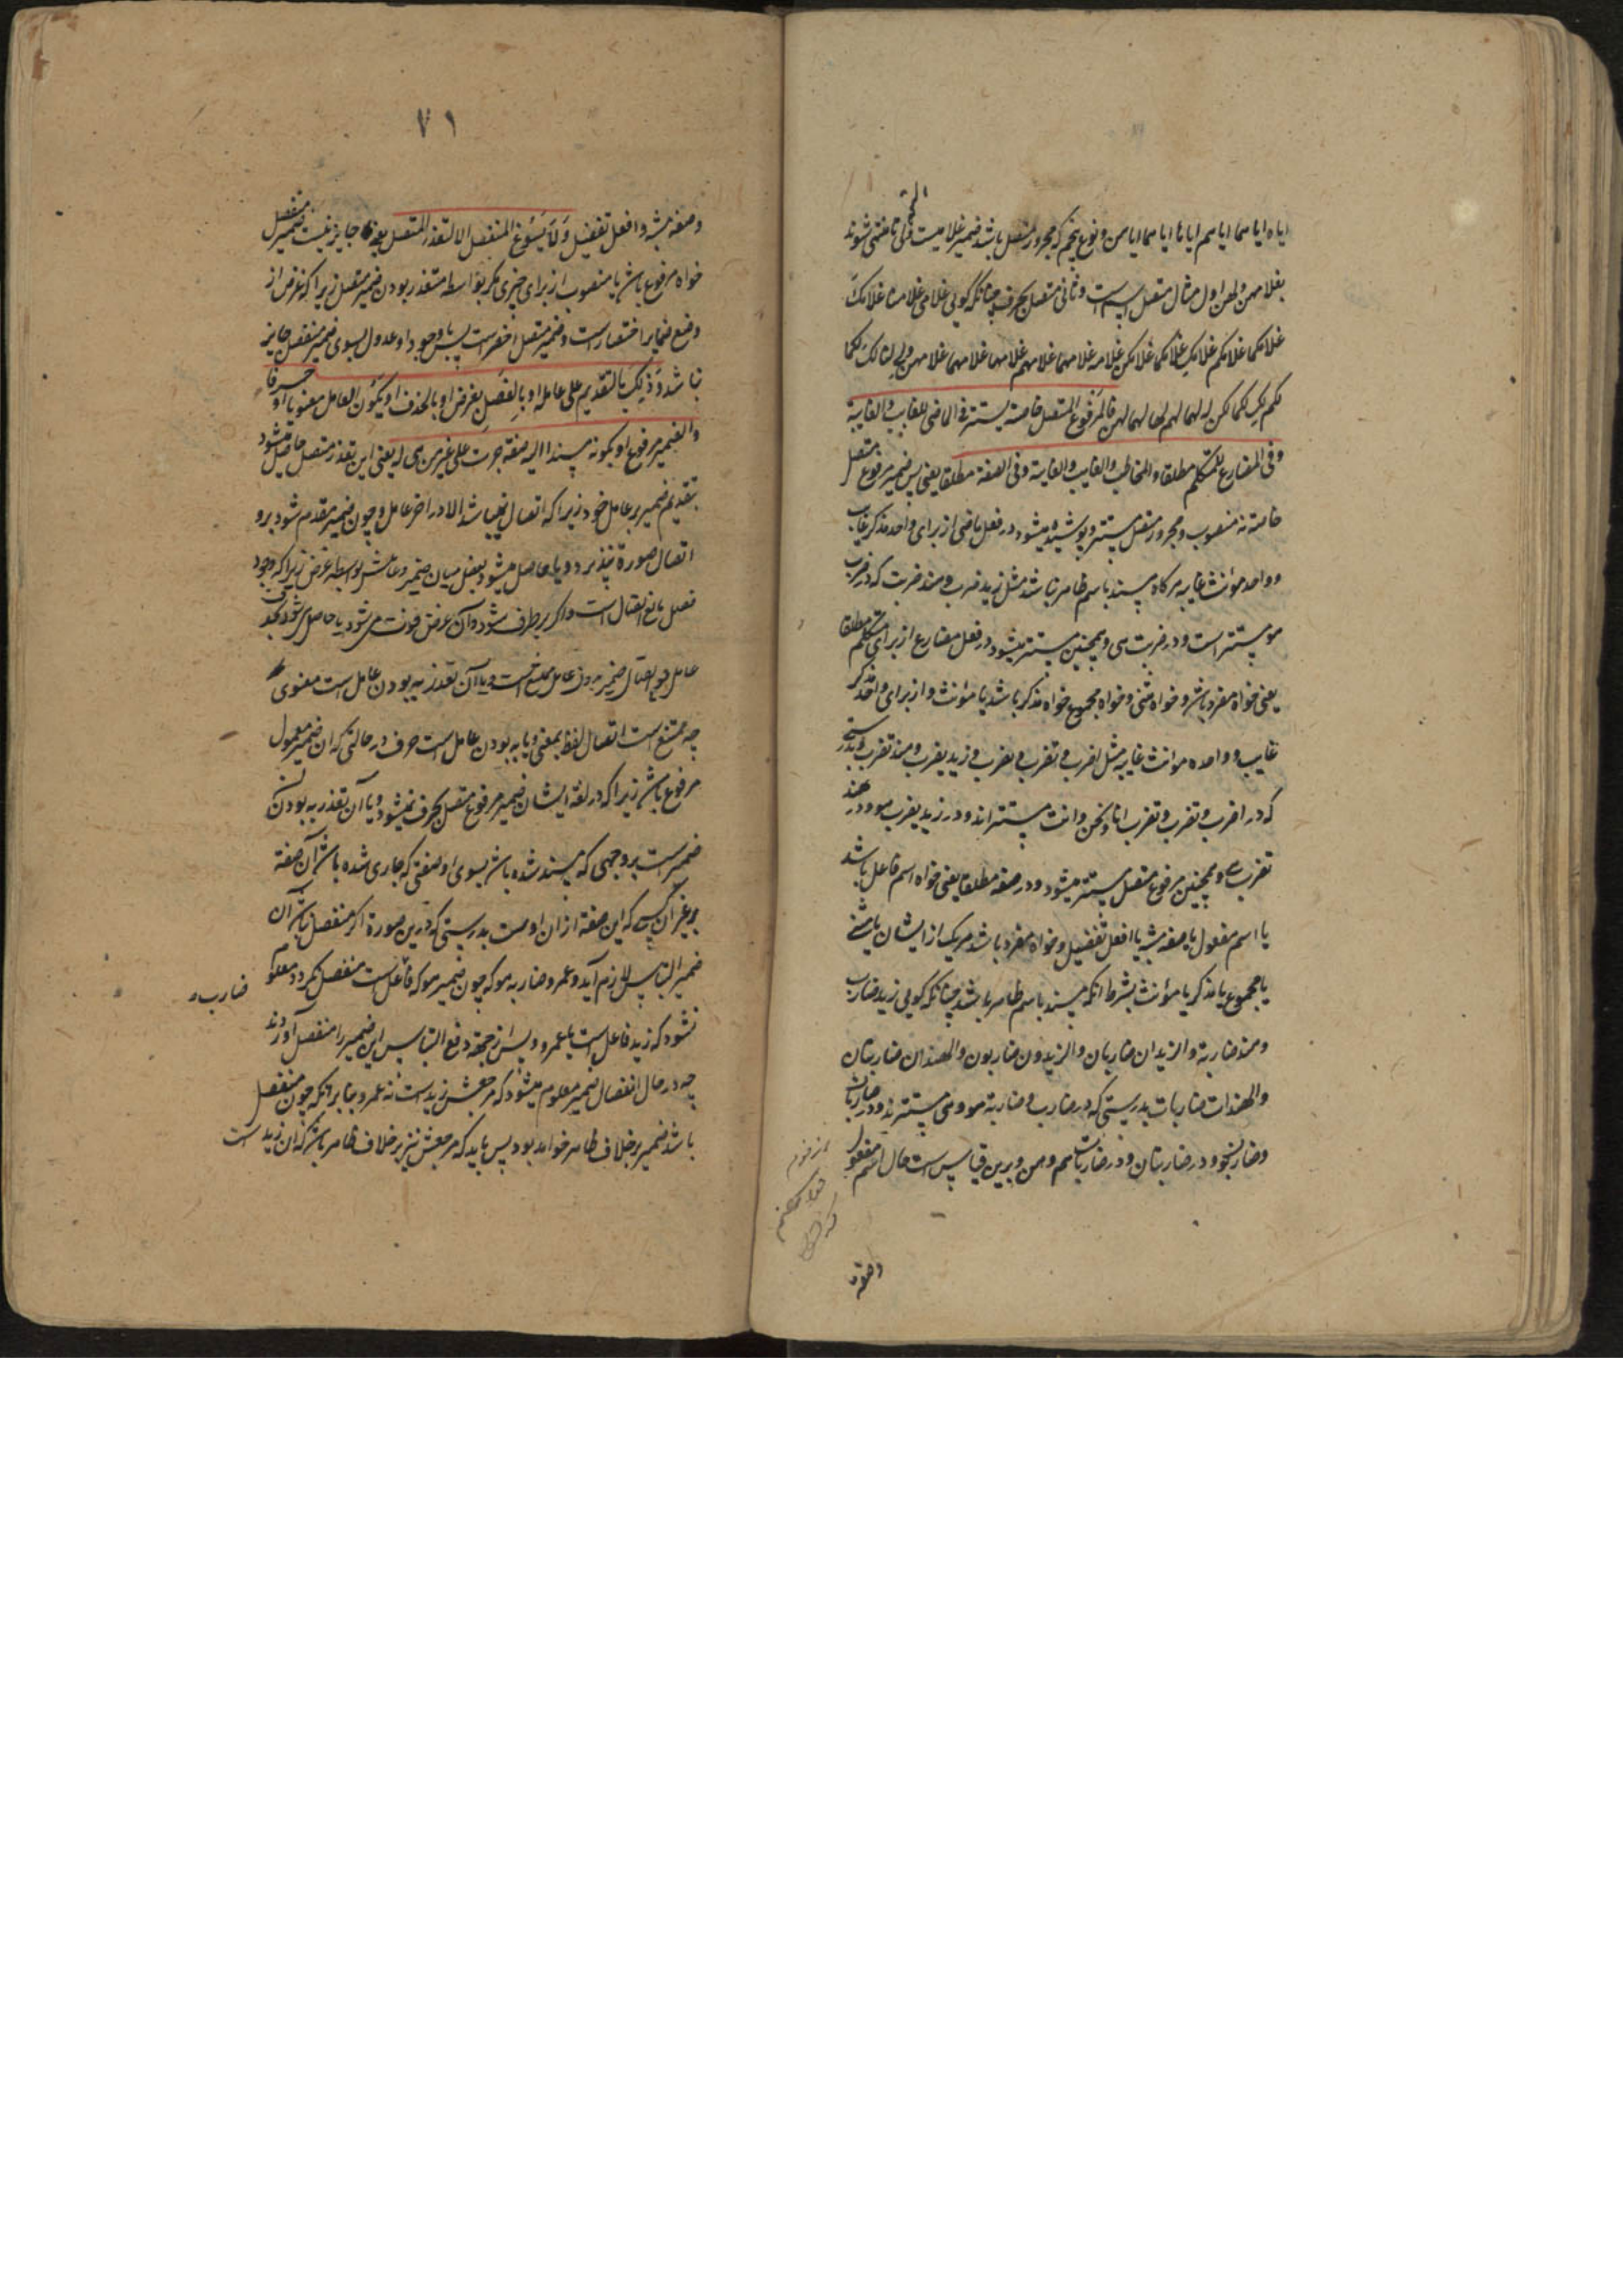 اياه اياهما اياهم اياها اياهما اياهن و نوع پنجم كه مجرور متصل باشد ضمير غلامي است ولي تا منتهي شوند
بغلامهن ولهن اول مثال متصل باسم است و ثاني متصل بحرف چنانكه گويي غلامي غلامنا غلامك
غلامكما غلامكم غلامك غلامكما غلامكن غلامه غلامهما غلامهم غلامها غلامهما غلامهن ولي لنا لك لكما
لكم لك لكما لكن له لهما لهم لها لهما لهن فالمرفوع المتصل خاصة يستتر في الماضي للغايب والغايبة
وفي المضارع للمتكلم مطلقا والمخاطب والغايب والغايبة وفي الصفة مطلقا يعني پس ضمير مرفوع متصل
خاصة نه منصوب و مجرور متصل مستتر و پوشيده ميشود در فعل ماضي از براي واحد مذكر غايب
و واحد مؤنث غايبه هرگاه مسند باسم ظاهر نباشد مثل زيد ضرب و هند ضربت كه در ضرب
هو مستتر است و در ضربت هي و همچنين مستتر ميشود در فعل مضارع از براي متكلم مطلقا
يعني خواه مفرد باشد و خواه مثني و خواه مجموع خواه مذكر باشد يا مؤنث و از براي واحد مذكر
غايب و واحده مؤنث غايبه مثل اضرب و نضرب و تضرب و زيد يضرب و هند تضرب بدرستي
كه در اضرب و نضرب و تضرب انا و نحن و انت مستتراند و در زيد يضرب هو و در هند
تضرب هي و همچنين مرفوع متصل مستتر ميشود در صفة مطلقا يعني خواه اسم فاعل باشد
يا اسم مفعول يا صفه مشبه يا افعل تفضيل و خواه مفرد باشد هر يك از ايشان يا مثني
يا مجموع يا مذكر يا مؤنث بشرط آنكه مسند باسم ظاهر نباشد چنانكه گويي زيد ضارب
و هند ضاربة والزيدان ضاربان والزيدون ضاربون والهندان ضاربتان
والهندات ضاربات بدرستي كه در ضارب و ضاربة هو و هي مستترند و در ضاربان
و در ضاربتان و در ضاربات هم و هن و برين قياس است حال اسم مفعول
وصفه
٧١
وصفه مشبه و افعل تفضيل ولا يسوغ المنفصل الا لتعذر المتصل يعني جايز نيست ضمير منفصل
خواه مرفوع باشد يا منصوب از براي چيزي مگر بواسطه متعذر بودن ضمير متصل زيرا كه غرض از
وضع ضماير اختصار است و ضمير متصل اخصر است پس با وجود او عدول بسوي ضمير منفصل جايز
نباشد وذلك بالتقديم علي عامله او بالفصل لغرض او بالحذف او بكون العامل معنويا او حرفا
والضمير مرفوع او بكونه مسندا اليه صفة جرت علي غير من هي له يعني اين تعذر متصل حاصل ميشود
بتقديم ضمير بر عامل خود زيرا كه اتصال نميباشد الا در آخر عامل و چون ضمير مقدم شود برو
اتصال صورة نپذيرد و يا حاصل ميشود بفصل ميان ضمير و عاملش بواسطه غرض زيرا كه وجود
فصل مانع اتصال است و اگر برطرف شود آن غرض فوت مي شود يا حاصل مي شود بحذف
عامل چه اتصال ضمير بدون عامل ممتنع است و يا آن تعذر به بودن عامل است معنوي
چه ممتنع است اتصال لفظ بمعني و يا به بودن عامل است حرف در حالتي كه آن ضمير معمول
مرفوع باشد زيرا كه در لغة ايشان ضمير مرفوع متصل بحرف نميشود و يا آن تعذر به بودن
ضمير است بر وجهي كه مسند شده باشد بسوي او صفتي كه جاري شده باشد آن صفة
بر غير آن كسي كه اين صفة از آن اوست بدرستي كه درين صورة اگر منفصل نباشد آن
ضمير التباس لازم آيد و عمرو ضاربه هو كه چون ضمير هو كه فاعل است منفصل نگردد معلوم
ضارب
نشود كه زيد فاعل است يا عمرو و پس از جهة دفع التباس اين ضمير را منفصل آوردند
چه در حال انفصال ضمير معلوم ميشود كه مرجعش زيد است نه عمرو بنابر آنكه چون منفصل
باشد ضمير بر خلاف ظاهر خواهد بود پس بايد كه مرجعش نيز بر خلاف ظاهر باشد كه آن زيد است